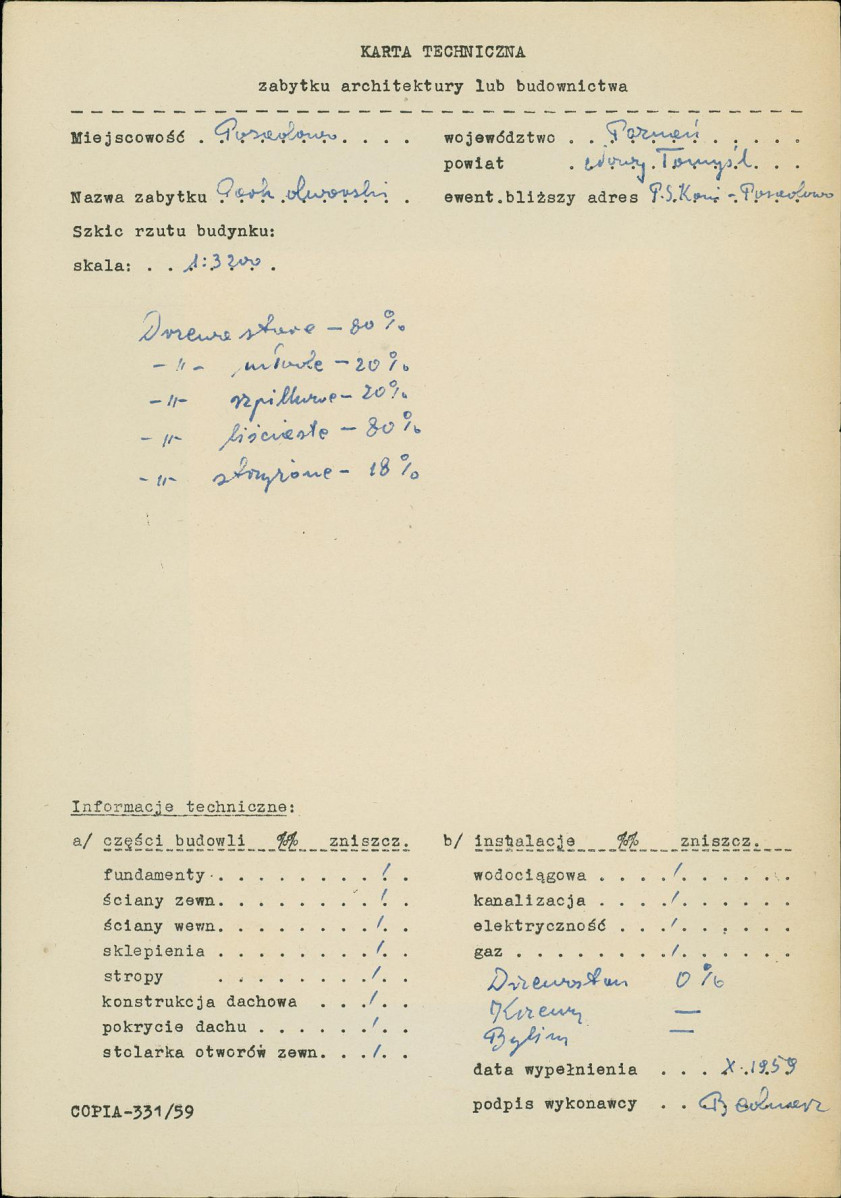 KARTA TECHNICZNA
zabytku architektury lub budownictwa
Miejscowość . Posadowo . . . .
województwo . . Poznań . . . . .
powiat . Nowy Tomyśl . . .
Nazwa zabytku Park dworski .
ewent.bliższy adres P.S.Koni - Posadowo
Szkic rzutu budynku:
skala: . . 1:3200 .
Drzewa stare - 80%
-"- młode - 20%
-"- szpilkowe - 20%
-"- liściaste - 80%
-"- strzyżone - 18%
Informacje techniczne:
a/ części budowli %% zniszcz.
b/ instalacje %% zniszcz.
fundamenty . . . . . . . . / .
wodociągowa . . . . / . . . . . .
ściany zewn. . . . . . . . / .
kanalizacja . . . . / . . . . . .
ściany wewn. . . . . . . . / . .
elektryczność . . . / . . . . . .
sklepienia . . . . . . . / . .
gaz . . . . . . . . / . . . . . .
stropy . . . . . . . / . .
Drzewostan 0%
konstrukcja dachowa . . . / . .
Krzewy —
pokrycie dachu . . . . . . / . .
Byliny —
stolarka otworów zewn. . . . / . .
data wypełnienia . . . X.1959
COPIA-331/59
podpis wykonawcy . .